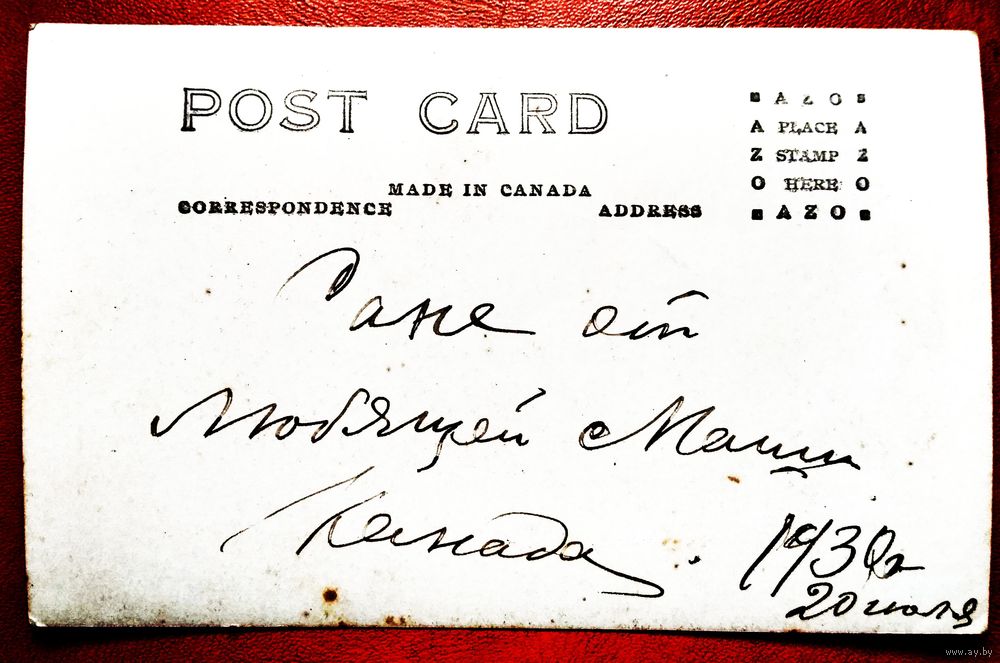 POST CARD
MADE IN CANADA
CORRESPONDENCE
ADDRESS
▪ A Z O ▪
A PLACE A
Z STAMP Z
O HERE O
▪ A Z O ▪
Сане от
любящей Маши
Канада. 1930г
20 июля
www.ay.by